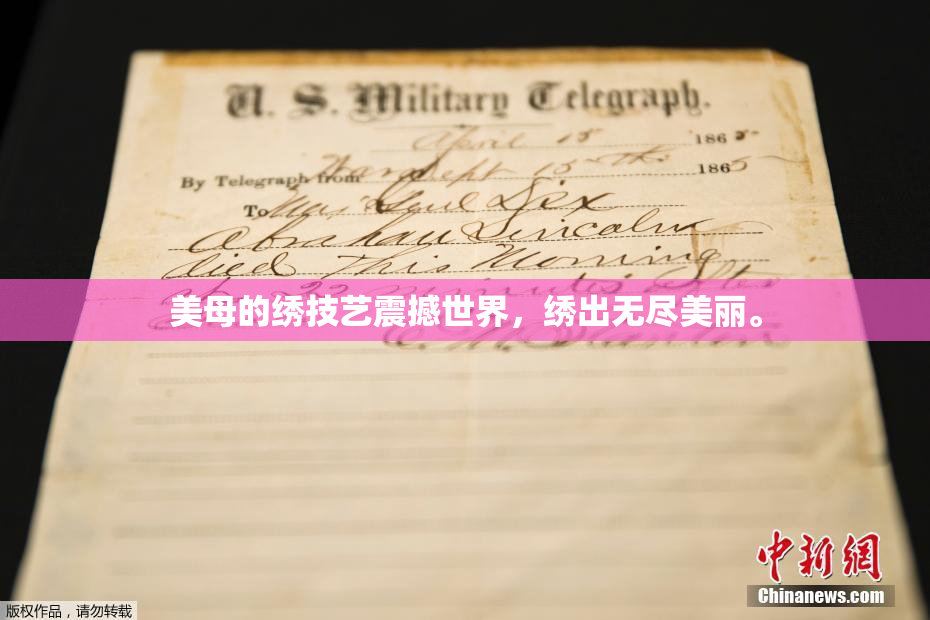 U. S. Military Telegraph.
April 15 1865.
By Telegraph from War Dept 15th 1865
To Maj Genl Dix
Abraham Lincoln
died This Morning
22 minutes after
美母的绣技艺震撼世界，绣出无尽美丽。
E. M. Stanton
中新网
Chinanews.com
版权作品，请勿转载